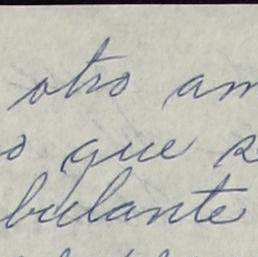 otro am
o que s
bulante